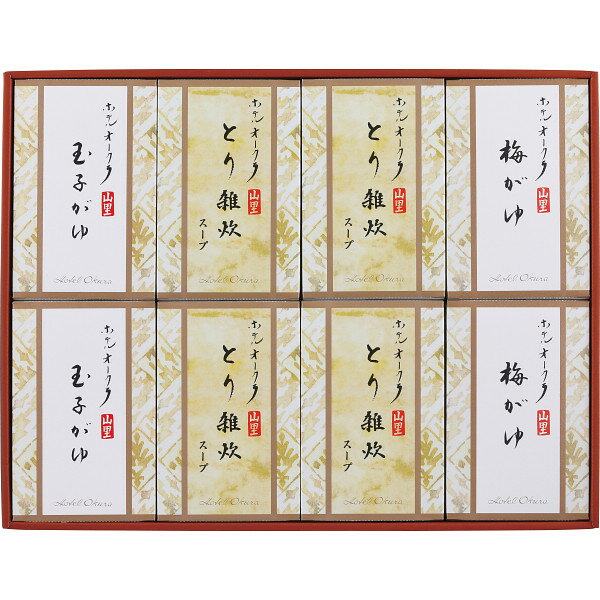 ホテルオークラ
山里
玉子がゆ
Hotel Okura
ホテルオークラ
山里
とり雑炊
スープ
Hotel Okura
ホテルオークラ
山里
とり雑炊
スープ
Hotel Okura
ホテルオークラ
山里
梅がゆ
Hotel Okura
ホテルオークラ
山里
玉子がゆ
Hotel Okura
ホテルオークラ
山里
とり雑炊
スープ
Hotel Okura
ホテルオークラ
山里
とり雑炊
スープ
Hotel Okura
ホテルオークラ
山里
梅がゆ
Hotel Okura